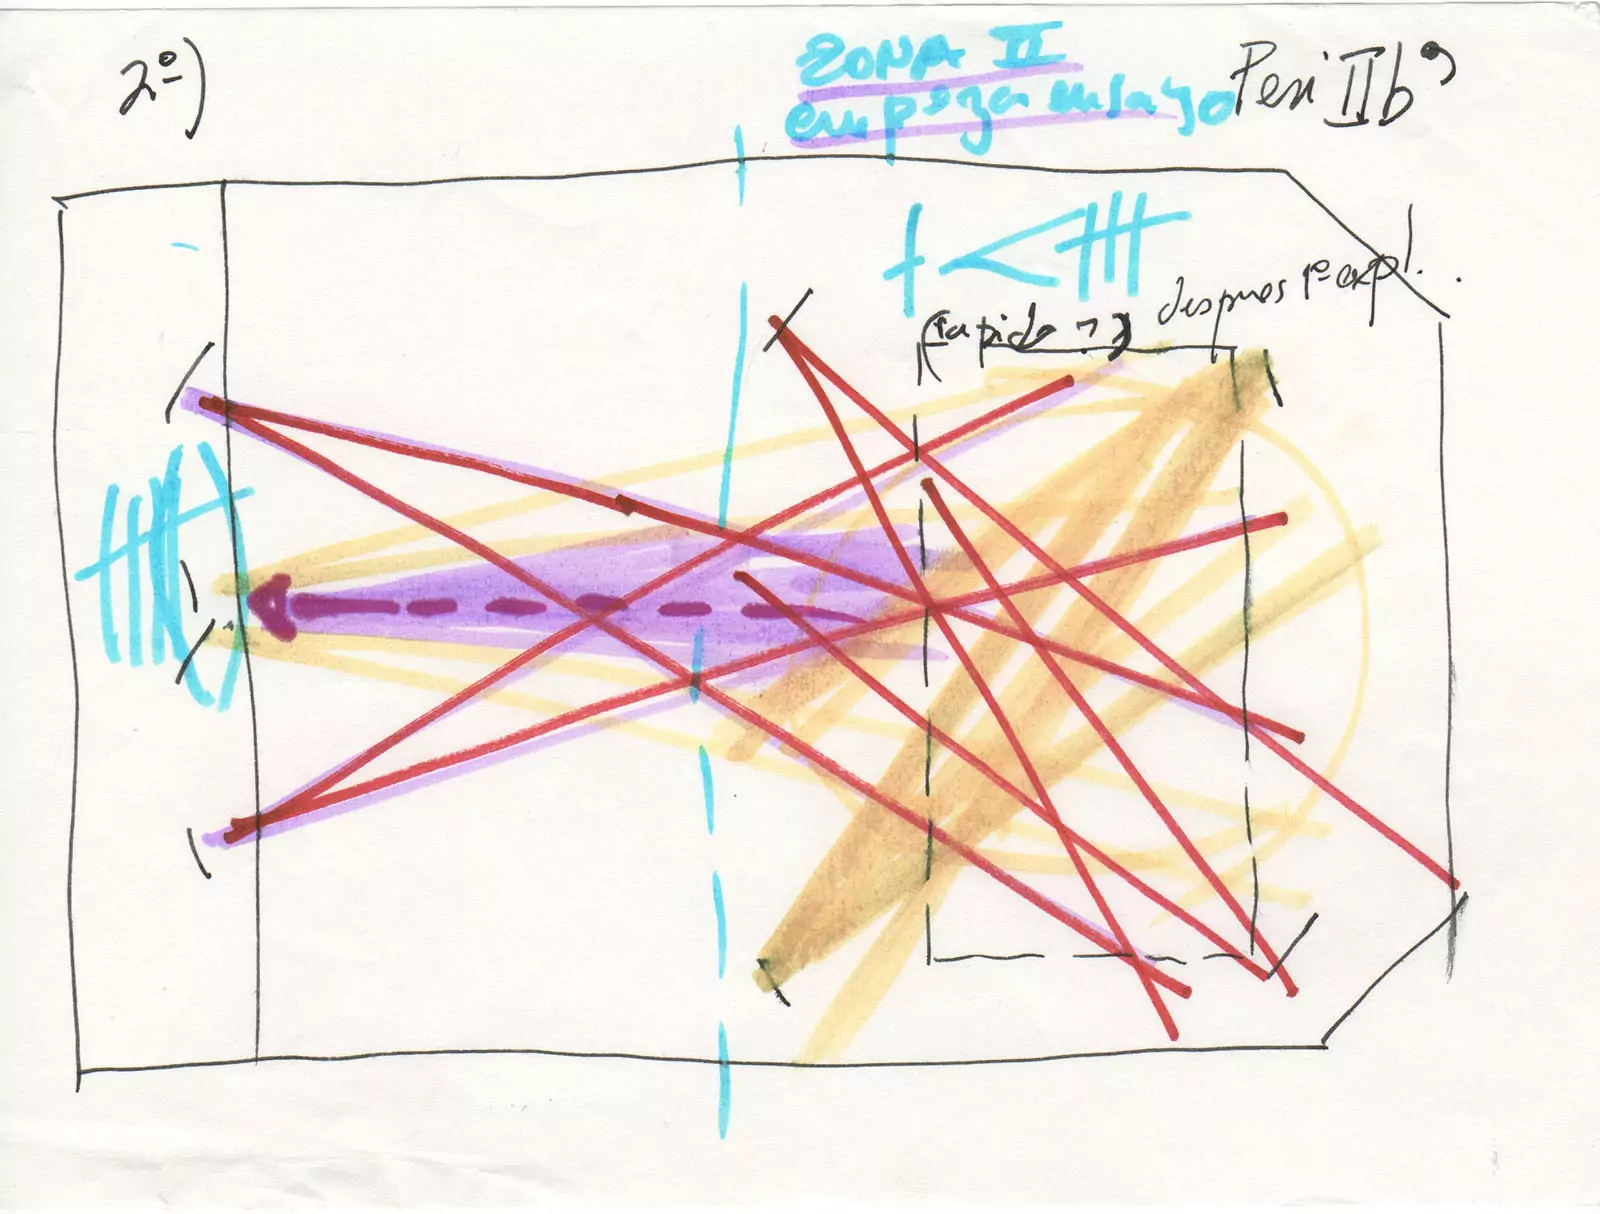 2º)
ZONA II
empeza ensayo
Peri IIb
(rapido
despues 1º expl.